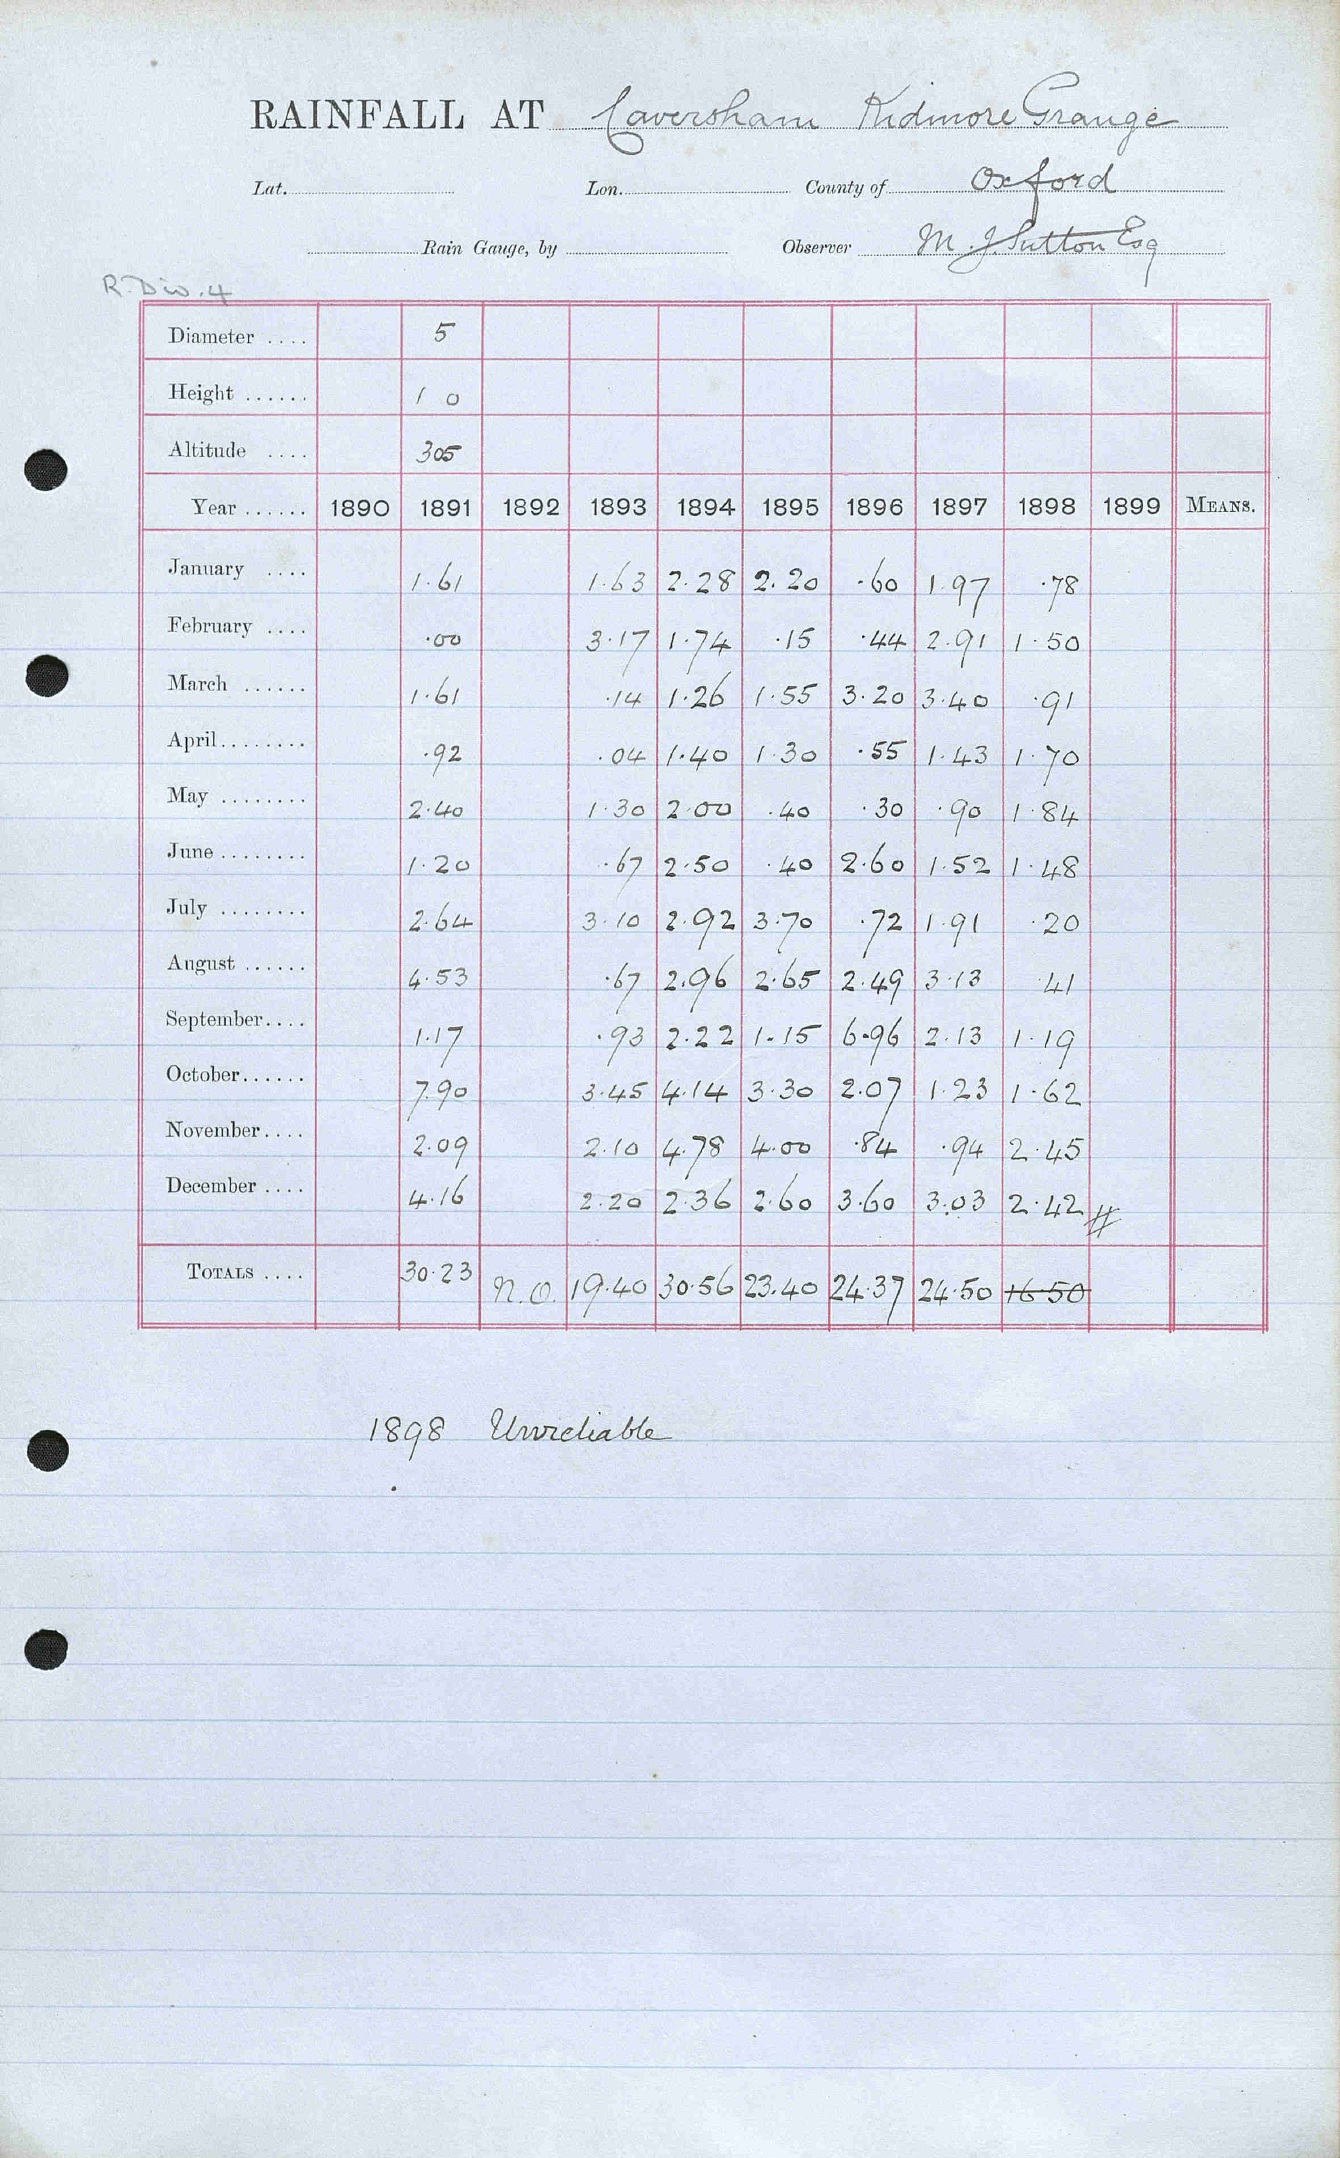 RAINFALL AT Caversham Kidmore Grange
Lat. Lon. County of Oxford
Rain Gauge, by Observer M. J. Sutton Esq
R. Div. 4
Diameter .... 5
Height ...... 1 0
Altitude .... 305
Year ...... 1890 1891 1892 1893 1894 1895 1896 1897 1898 1899 MEANS.
January .... 1.61 1.63 2.28 2.20 .60 1.97 .78
February .... .00 3.17 1.74 .15 .44 2.91 1.50
March ...... 1.61 .14 1.26 1.55 3.20 3.40 .91
April........ .92 .04 1.40 1.30 .55 1.43 1.70
May ........ 2.40 1.30 2.00 .40 .30 .90 1.84
June ........ 1.20 .67 2.50 .40 2.60 1.52 1.48
July ........ 2.64 3.10 2.92 3.70 .72 1.91 .20
August ...... 4.53 .67 2.96 2.65 2.49 3.13 .41
September.... 1.17 .93 2.22 1.15 6.96 2.13 1.19
October...... 7.90 3.45 4.14 3.30 2.07 1.23 1.62
November.... 2.09 2.10 4.78 4.00 .84 .94 2.45
December .... 4.16 2.20 2.36 2.60 3.60 3.03 2.42 #
TOTALS .... 30.23 N.O. 19.40 30.56 23.40 24.37 24.50 16.50
1898 Unreliable